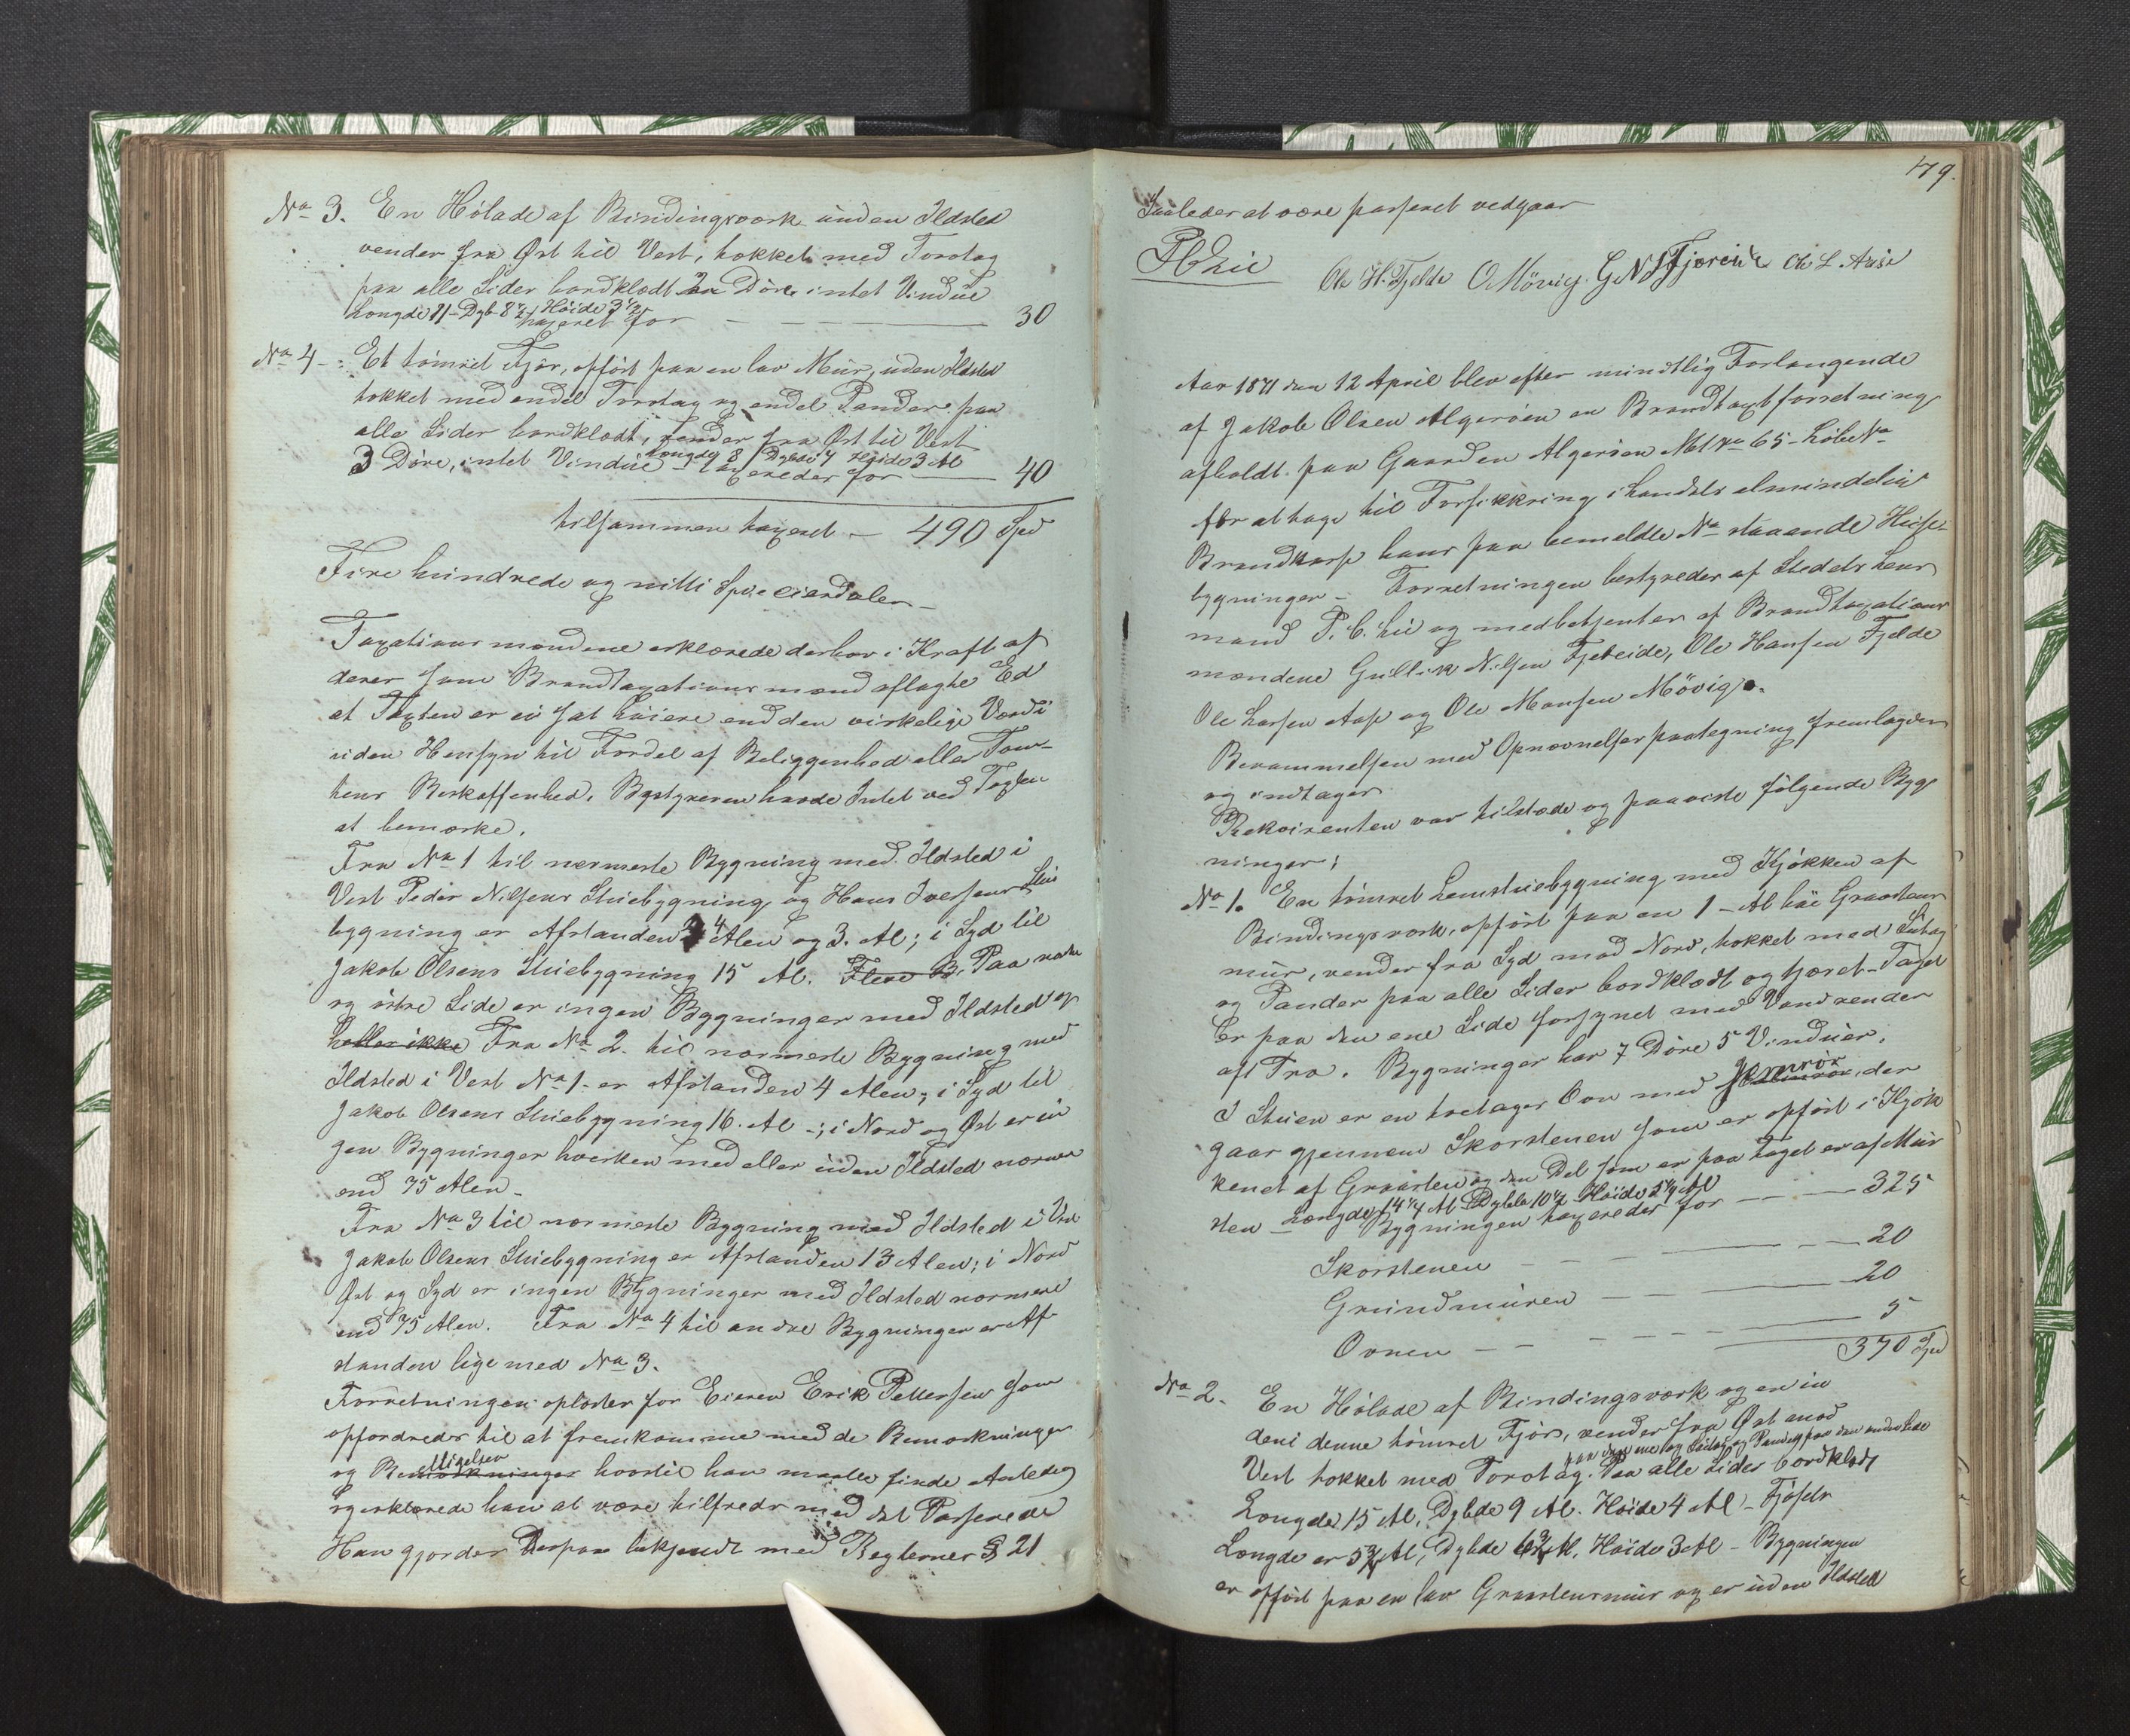 No 3. En Hölade af Bindingsværk uden Ildsted
vender fra Øst til Vest, tækket med Torvtag
paa alle Sider bordklædt Döre intet Vindue
Længde 11 - Dyb 8 1/2 Höide 3 1/2
taxeret for - - - 30
No 4 - Et tömret Fjös, opfört paa en lav Mur, uden Ildsted
tækket med endel Torvtag og endel Pander. paa
alle Sider bordklædt, vender fra Øst til Vest
Længde 8 Dybde 7 Höide 3 Al
3 Döre, intet Vindue - taxeredes for - 40
tilsammen taxeret - 490 Spd
Fire hundrede og nitti Speciesdaler -
Taxationsmændene erklærede derhos i Kraft af
deres som Brandtaxationsmænd aflagte Ed
at Taxten er ei sat höiere end den virkelige Værdi
uden Hensyn til Fordel af Beliggenhed eller Tom-
tens Beskaffenhed. Bestyreren havde Intet ved Taxten
at bemærke.
Fra No 1 til nærmeste Bygning med Ildsted i
Vest Peder Nilsens Stuebygning og Hans Iversens Stue
bygning er Afstanden 4 Alen og 3. Al; i Syd til
Jakob Olsens Stuebygning 15 Al. Flere B. Paa nordre
og östre Side er ingen Bygninger med Ildsted og
heller ikke Fra No 2. til nærmeste Bygning med
Ildsted i Vest No 1 - er Afstanden 4 Alen; i Syd til
Jakob Olsens Stuebygning 16. Al -; i Nord og Øst er in
gen Bygninger hverken med eller uden Ildsted nærmere
end 75 Alen -
Fra No 3 til nærmeste Bygning med Ildsted i Vest
Jakob Olsens Stuebygning er Afstanden 13 Alen; i Nord
Øst og Syd er ingen Bygninger med Ildsted nærmere
end 75 Alen. Fra No 4 til andre Bygninger er Af
standen lige med No 3.
Forretningen oplæstes for Eieren Erik Pettersen som
opfordredes til at fremkomme med de Bemærkninger
og Bemærkninger hvortil han maatte finde Anledning
og erklærede han at være tilfreds med det Passerede
Han gjordes Derpaa bekjendt med Reglernes § 21
479.
Saaledes at være passeret vedgaar
P C Lie Ole H. Fjelde O Mövig. G N Fjereide Ole L. Aase
Aar 1871 den 12 April blev efter mundtlig Forlangende
af Jakob Olsen Algeröen en Brandtaxtforretning
afholdt paa Gaarden Algeröen Mat No 65 - Löbe No
for at tage til Forsikkring i Landets almindelige
Brandkasse hans paa bemeldte No staaende Huse
bygninger - Forretningen bestyredes af Stedets Lens
mand P. C. Lie og medbetjentes af Brandtaxations
mændene Gullik Nilsen Fjereide, Ole Hansen Fjelde
Ole Larsen Aase og Ole Monsen Mövig.
Berammelsen med Opnævnelsespaategning fremlagdes
og indtages
Rekvirenten var tilstæde og paaviste fölgende Byg
ninger:
No 1. En tömret Lemstuebygning med Kjökken af
Bindingsværk, opfört paa en 1 - Al höi Graastens
mur, vender fra Syd mod Nord, tækket med
og Pander paa alle Sider bordklædt og tjæret - Taget
er paa den ene Side forsynet med Vandrender
af Træ. Bygningen har 7 Döre 5 Vinduer.
I Stuen er en toetages Ovn med Jernrör, der
gaar gjennem Skorstenen som er opfört i Kjök
kenet af Graasten og den Del som er paa Taget er af Mur
sten - Længde 14 1/4 Al Dybde 10 1/2 Höide 5 1/4 Al
Bygningen taxeredes for - - 325
Skorstenen - - - 20
Grundmuren - - - 20
Ovnen - - - 5
370 Spd
No 2. En Hölade af Bindingsværk og en in
deni denne tömret Fjös, vender fra Øst mod
Vest tækket med Torvtag. Paa alle Sider bordklædt
Længde 15 Al, Dybde 9 Al. Höide 4 Al - Fjösets
Længde er 5 3/4 Al, Dybde 6 3/4 Al. Höide 3 Al - Bygningen
er opfört paa en lav Graastensmur og er uden Ildsted